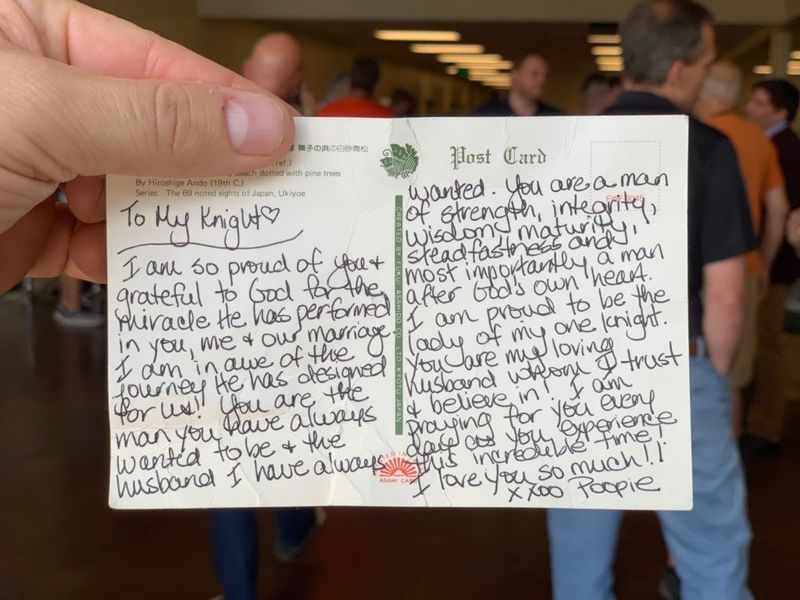 舞子の浜の白砂青松
ref.)
beach dotted with pine trees
By Hiroshige Ando (19th C.)
Series. The 69 noted sights of Japan, Ukiyoe
Post Card
CREATED BY FUKUI ASAHIDO CO. LTD. KYOTO JAPAN
ASAHI CARD
To My Knight♡
I am so proud of you &
grateful to God for the
miracle He has performed
in you, me & our marriage.
I am in awe of the
journey He has designed
for us! You are the
man you have always
wanted to be & the
husband I have always
wanted. You are a man
of strength, integrity,
wisdom, maturity,
steadfastness and,
most importantly a man
after God's own heart.
I am proud to be the
lady of my one knight.
You are my loving
husband whom I trust
& believe in! I am
praying for you every
day as you experience
this incredible time!
I love you so much!!
xxoo Poopie